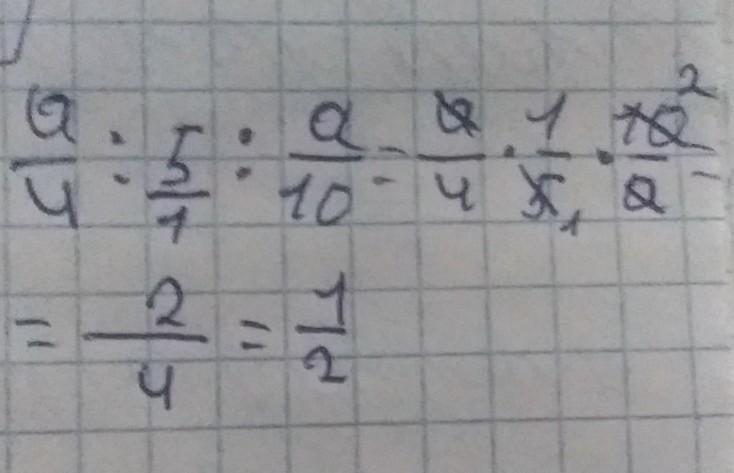 a/4 : 5/1 : a/10 = a/4 · 1/5 1 · 10 2/a =
= 2/4 = 1/2